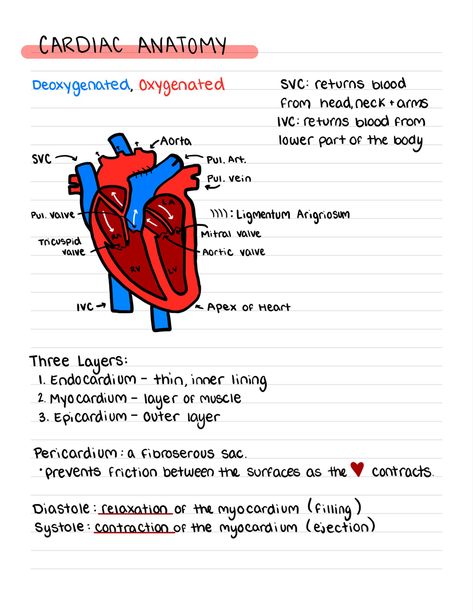 CARDIAC ANATOMY
Deoxygenated, Oxygenated
SVC: returns blood
from head, neck + arms
IVC: returns blood from
lower part of the body
Aorta
SVC
Pul. Art.
Pul. vein
LA
Pul. valve
)))) : Ligmentum Arigriosum
RA
Mitral valve
Tricuspid
valve
Aortic valve
RV
LV
IVC
Apex of Heart
Three Layers:
1. Endocardium - thin, inner lining
2. Myocardium - layer of muscle
3. Epicardium - outer layer
Pericardium: a fibroserous sac.
• prevents friction between the surfaces as the ♥ contracts.
Diastole: relaxation of the myocardium (filling)
Systole: contraction of the myocardium (ejection)